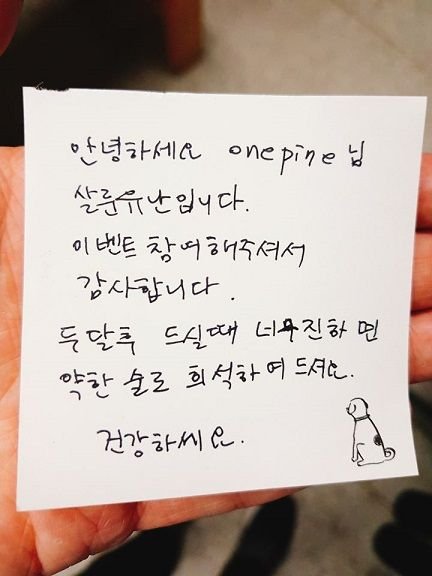 안녕하세요 onepine님
살룬유난입니다.
이벤트 참여해주셔서
감사합니다.
두달후 드실때 너무진하면
약한 술로 희석하여 드셔요.
건강하세요.